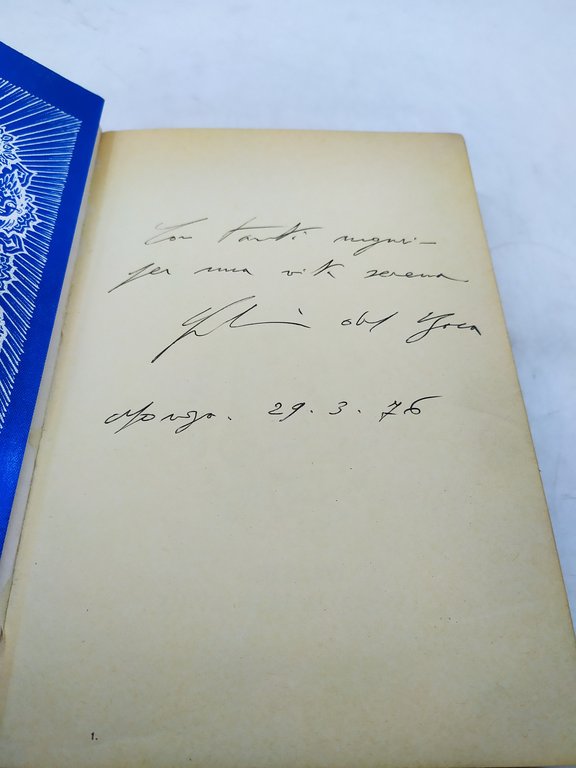 Con tanti auguri -
per una vita serena
del Yoga
29.3.76
1.